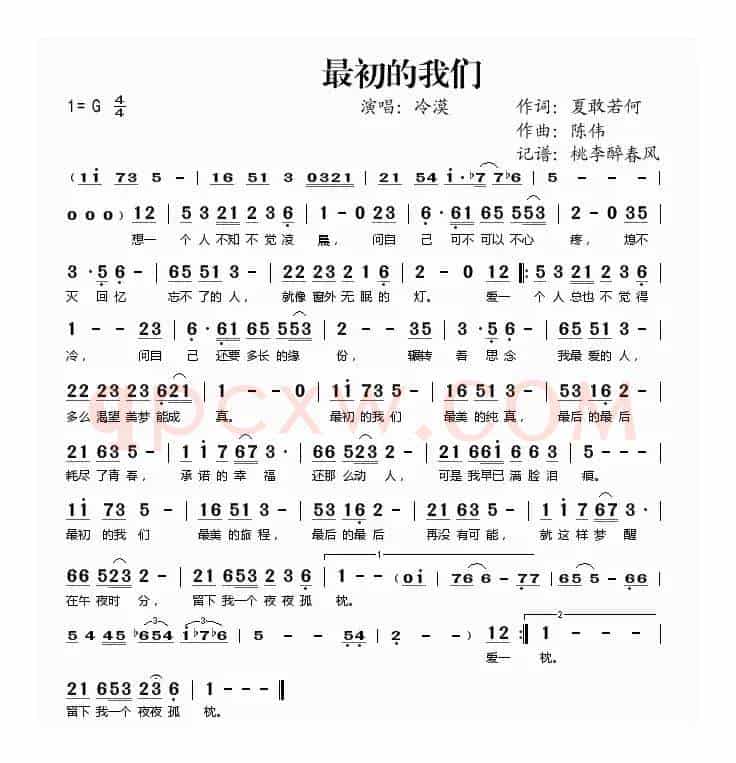 最初的我们
1=G 4/4 演唱：冷漠 作词：夏敢若何
作曲：陈伟
记谱：桃李醉春风
(1i 73 5 - | 16 51 3 0321 | 21 54 i·♭7 7♭6 | 5 - - -
0 0 0) 12 | 5 3 21 2 3 6 | 1 - 0 23 | 6· 61 65 553 | 2 - 0 35 |
想一 个 人 不知 不 觉 凌 晨， 问自 己 可不 可以 不心 疼，熄不
3 · 5 6 - | 65 51 3 - | 22 23 21 6 | 2 - 0 12 |: 5 3 21 2 3 6 |
灭 回 忆 忘不 了的 人， 就像 窗外 无 眠 的 灯。 爱一 个 人 总也 不 觉 得
1 - - 23 | 6· 61 65 553 | 2 - - 35 | 3 · 5 6 - | 65 51 3 - |
冷， 问自 己 还要 多长 的缘 份， 辗转 着 思 念 我最 爱的 人，
22 23 23 621 | 1 - - 0 | 1i 73 5 - | 16 51 3 - | 53 16 2 - |
多么 渴望 美梦 能成 真。 最初 的我 们 最美 的纯 真， 最后 的最 后
21 63 5 - | 1 i 7 67 3 · | 16 53 2 - | 21 66i 6 3 | 5 - - - |
耗尽 了青 春， 承 诺 的 幸 福 还那 么动 人， 可是 我早已 满 脸 泪 痕。
1i 73 5 - | 16 51 3 - | 53 16 2 - | 21 63 5 - | 1 i 7 67 3 |
最初 的我 们 最美 的旅 程， 最后 的最 后 再没 有可 能， 就 这 样 梦 醒
66 523 2 - | 21 653 2 3 6 | 1 - - (0i | 76 6 - 77 | 65 5 - 66 |
在午 夜时 分， 留下 我一个 夜 夜 孤 枕。
5 4 45 ♭654 i♭7♭6 | 5 - - 54 | 2 - - ) | 12 :| 1 - - |
爱一 枕。
21 653 23 6 | 1 - - ‖
留下 我一个 夜夜 孤 枕。
qpcxw.COM